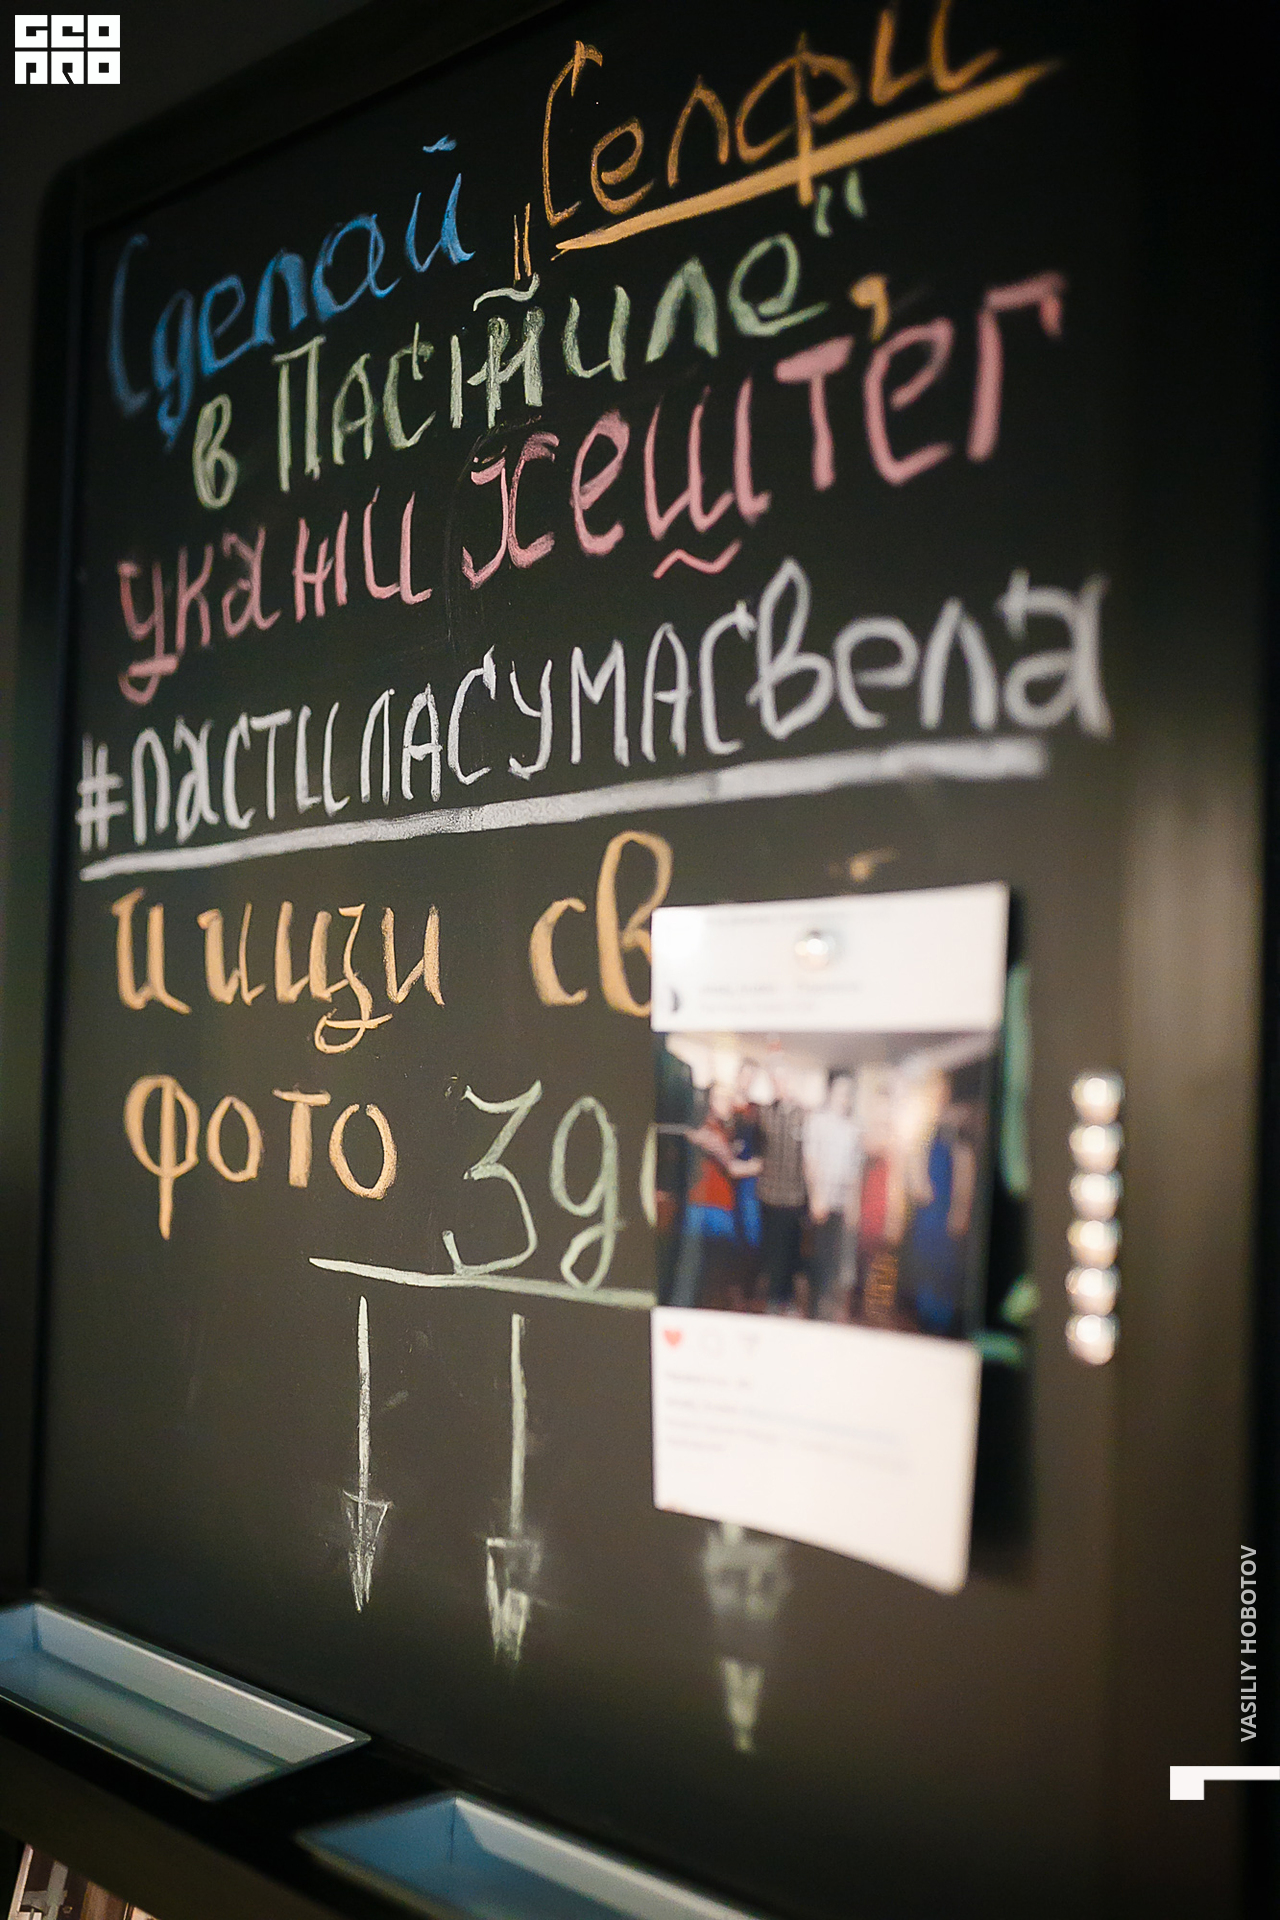 GEO
PRO
Сделай „Селфи
в Пастиле",
укажи хештег
#пастиласумасвела
и ищи св
фото зд
VASILIY HOBOTOV